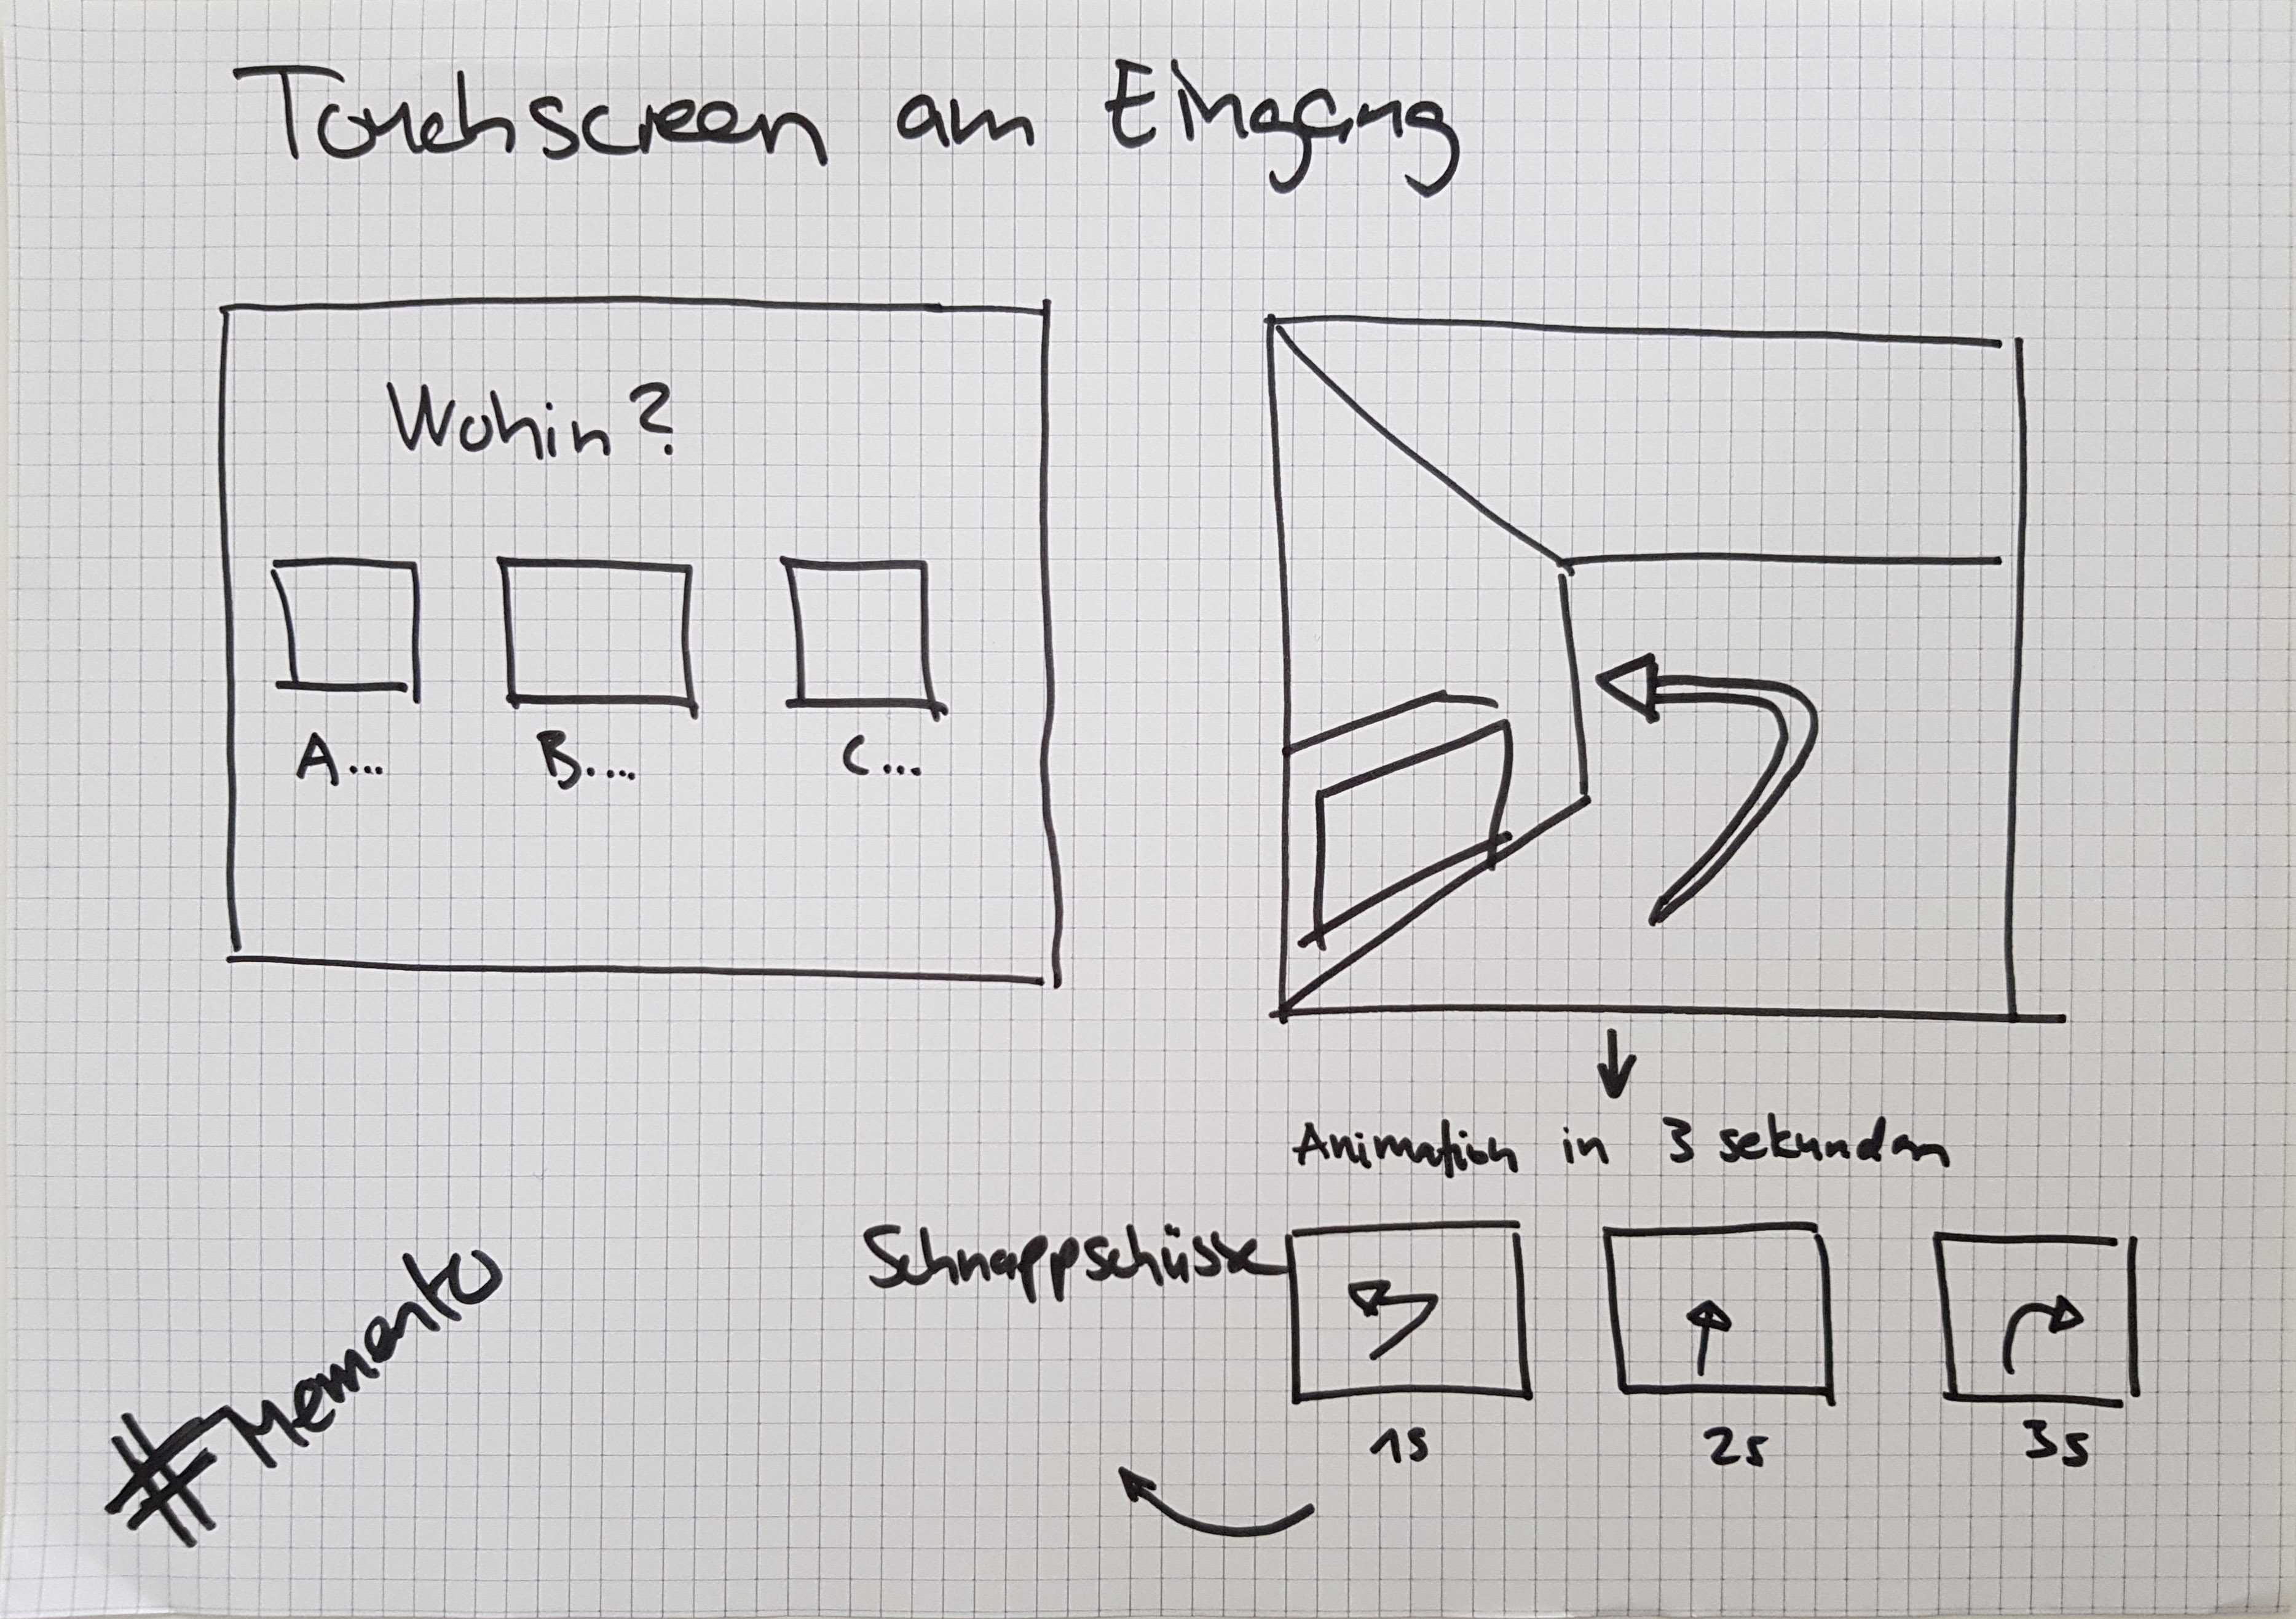 Touchscreen am Eingang
Wohin?
A... B.... C...
Animation in 3 sekunden
Schnappschüsse
1s 2s 3s
#Memento